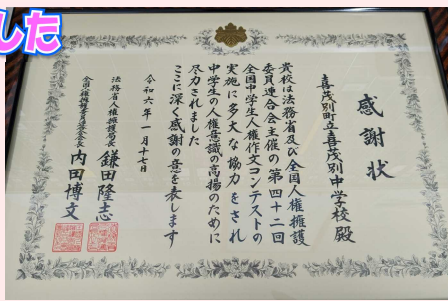 した
感謝状
喜茂別町立喜茂別中学校 殿
貴校は法務省及び全国人権擁護
委員連合会主催の第四十二回
全国中学生人権作文コンテストの
実施に多大な協力をされ
中学生の人権意識の高揚のために
尽力されました
ここに深く感謝の意を表します
令和六年一月十七日
法務省人権擁護局長 鎌田隆志
全国人権擁護委員連合会長 内田博文